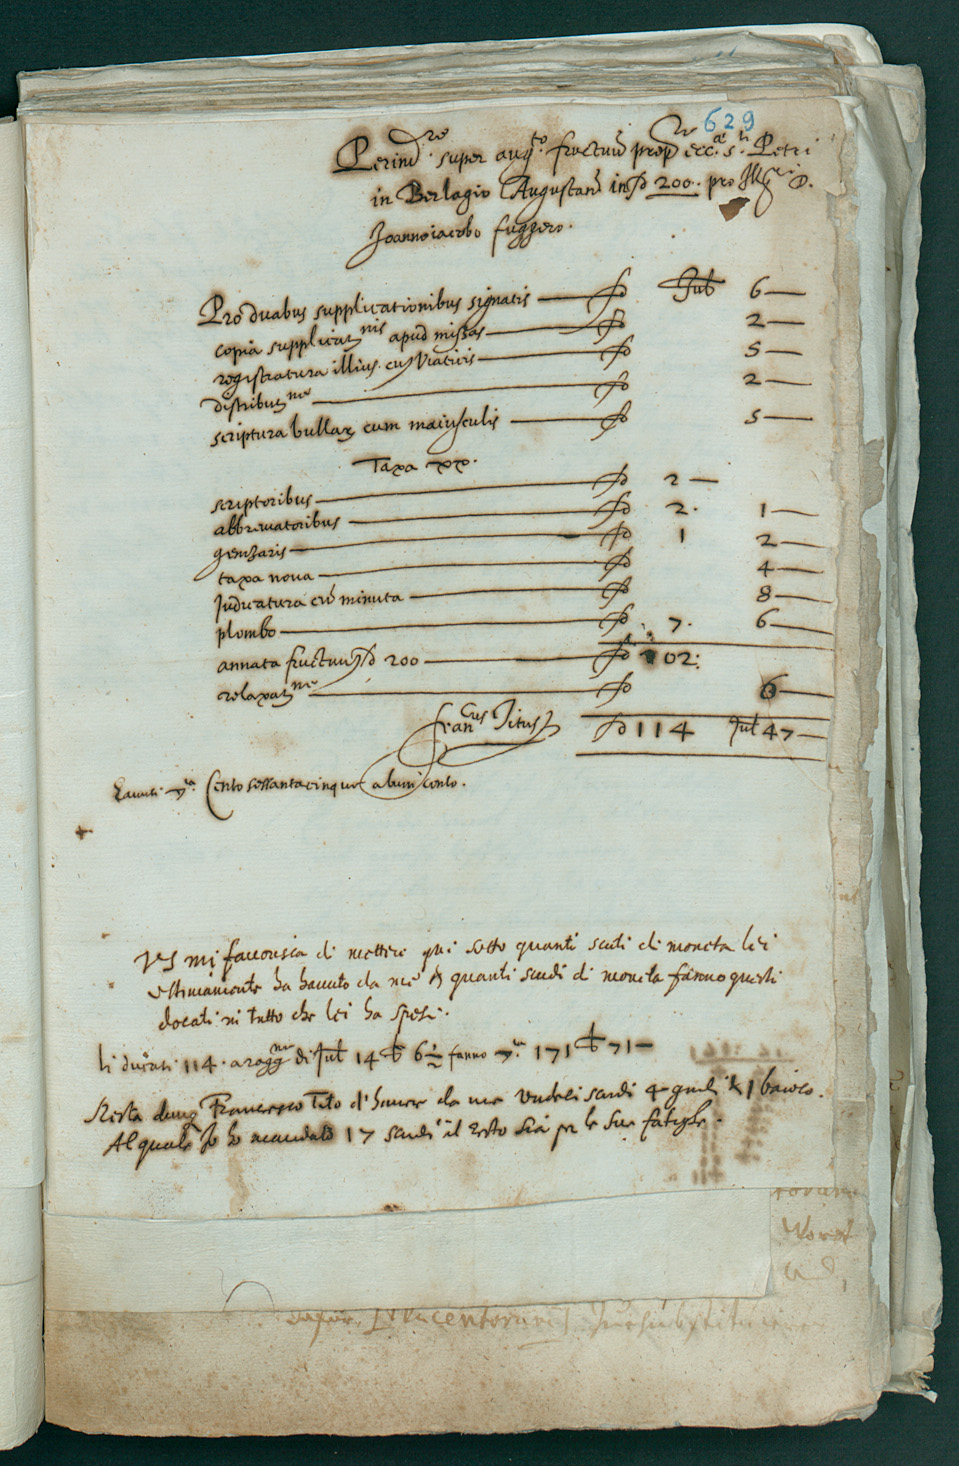 629
Perind.re super aug.to fructuũ prep.re ecc.æ s.ti Petri
in Berlagio Augustañ in 200. pro Ill. D.
Joannoiacobo fuggero.
Pro duabus supplicationibus signatis — Jul 6 —
copia supplicatnis apud missas — 2 —
registratura illius. cum Viaticis — 5 —
distributne — 2 —
scriptura bullar cum maiusculis — 5 —
Taxa xx.
scriptoribus — 2 —
abbreviatoribus — 2. 1 —
genizaris — 1 2 —
taxa nova — 4 —
Judicatura cũ minuta — 8 —
plombo — 7. 6 —
annata fructuum 200 — 102:
relaxatne — 6 —
francus Titus 114 Jul 47 —
Cento sessantacinque
VS mi favorisca di mettere qui sotto quanti scuti di moneta lei
ultimamente ha havuto da me & quanti scudi di moneta fanno questi
docati in tutto che lei ha spesi.
li ducati 114. a ragg.ne di Jul 14 b 6 fanno 171 b 71 —
Resta dunq Francesco Tito d'haver da me undeci scudi 4 giuli & 1 baioco.
Al quale Jo ho mandato 17 scudi il resto sia per le sue fatighe.